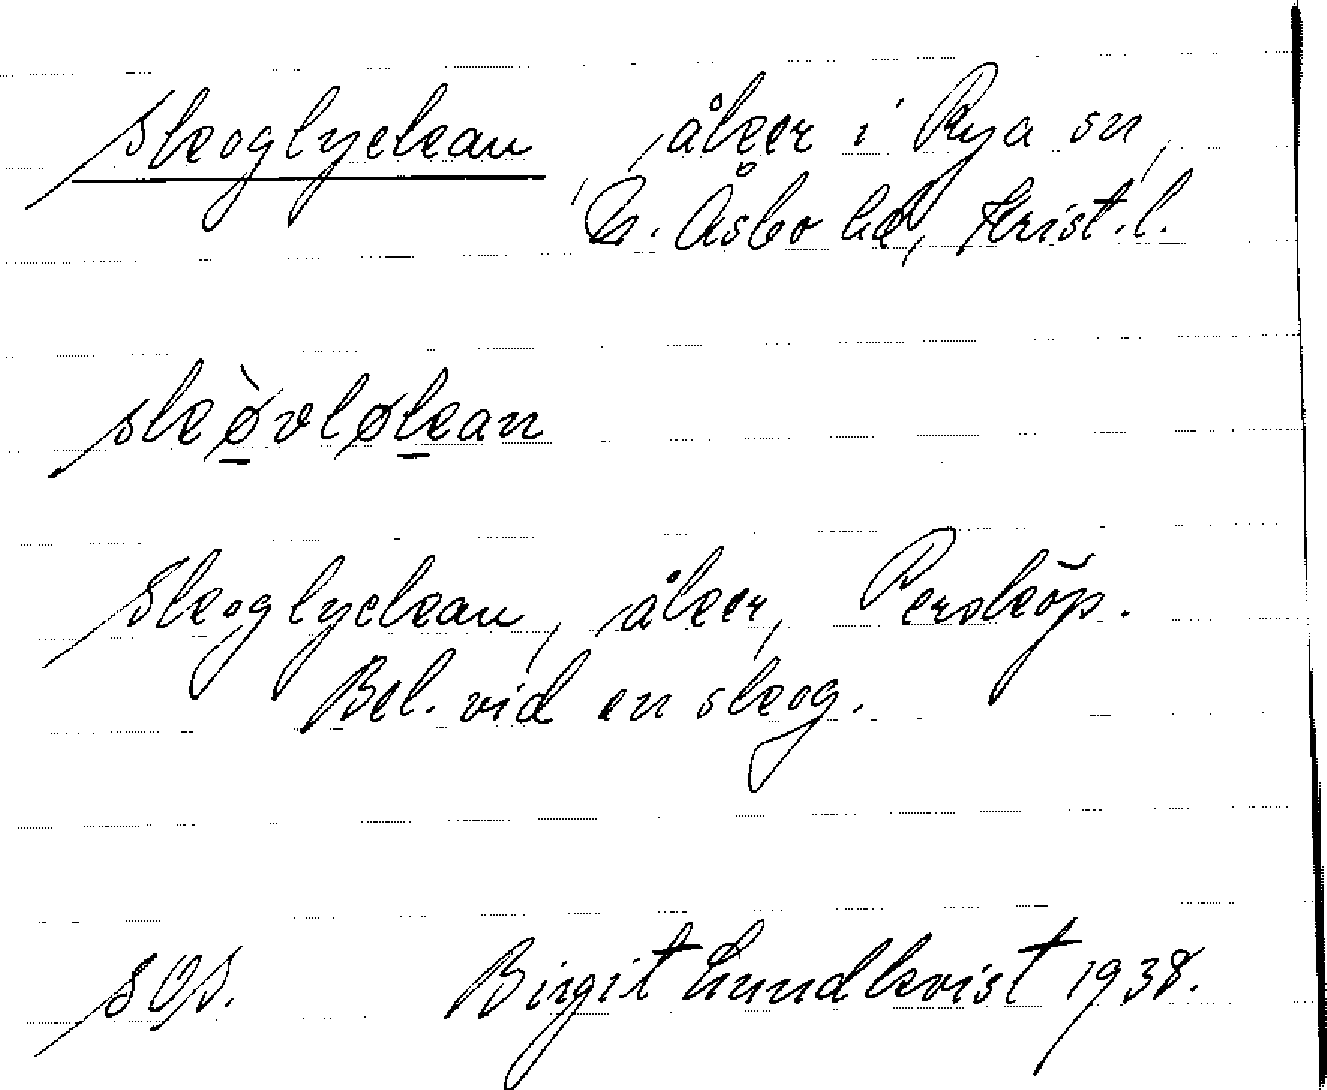 Skoglyckan, åker i Rya sn,
N. Åsbo hd, Krist.l.
skø̀vløkan
Skoglyckan, åker, Persköp.
Bel. vid en skog.
SOS. Birgit Lundkvist 1938.